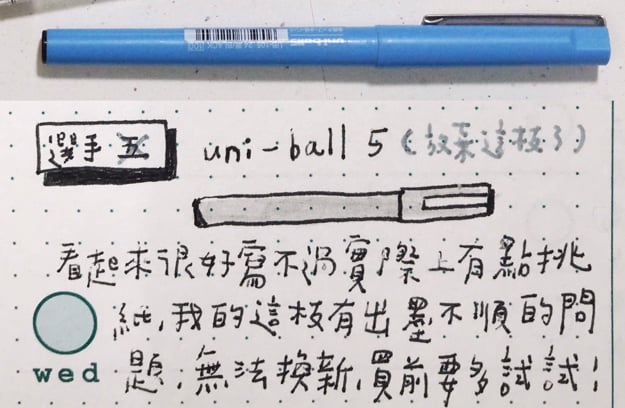 選手五 uni-ball 5 (放棄這枝了)
看起來很好寫不過實際上有點挑
紙，我的這枝有出墨不順的問
wed 題，無法換新，買前要多試試！